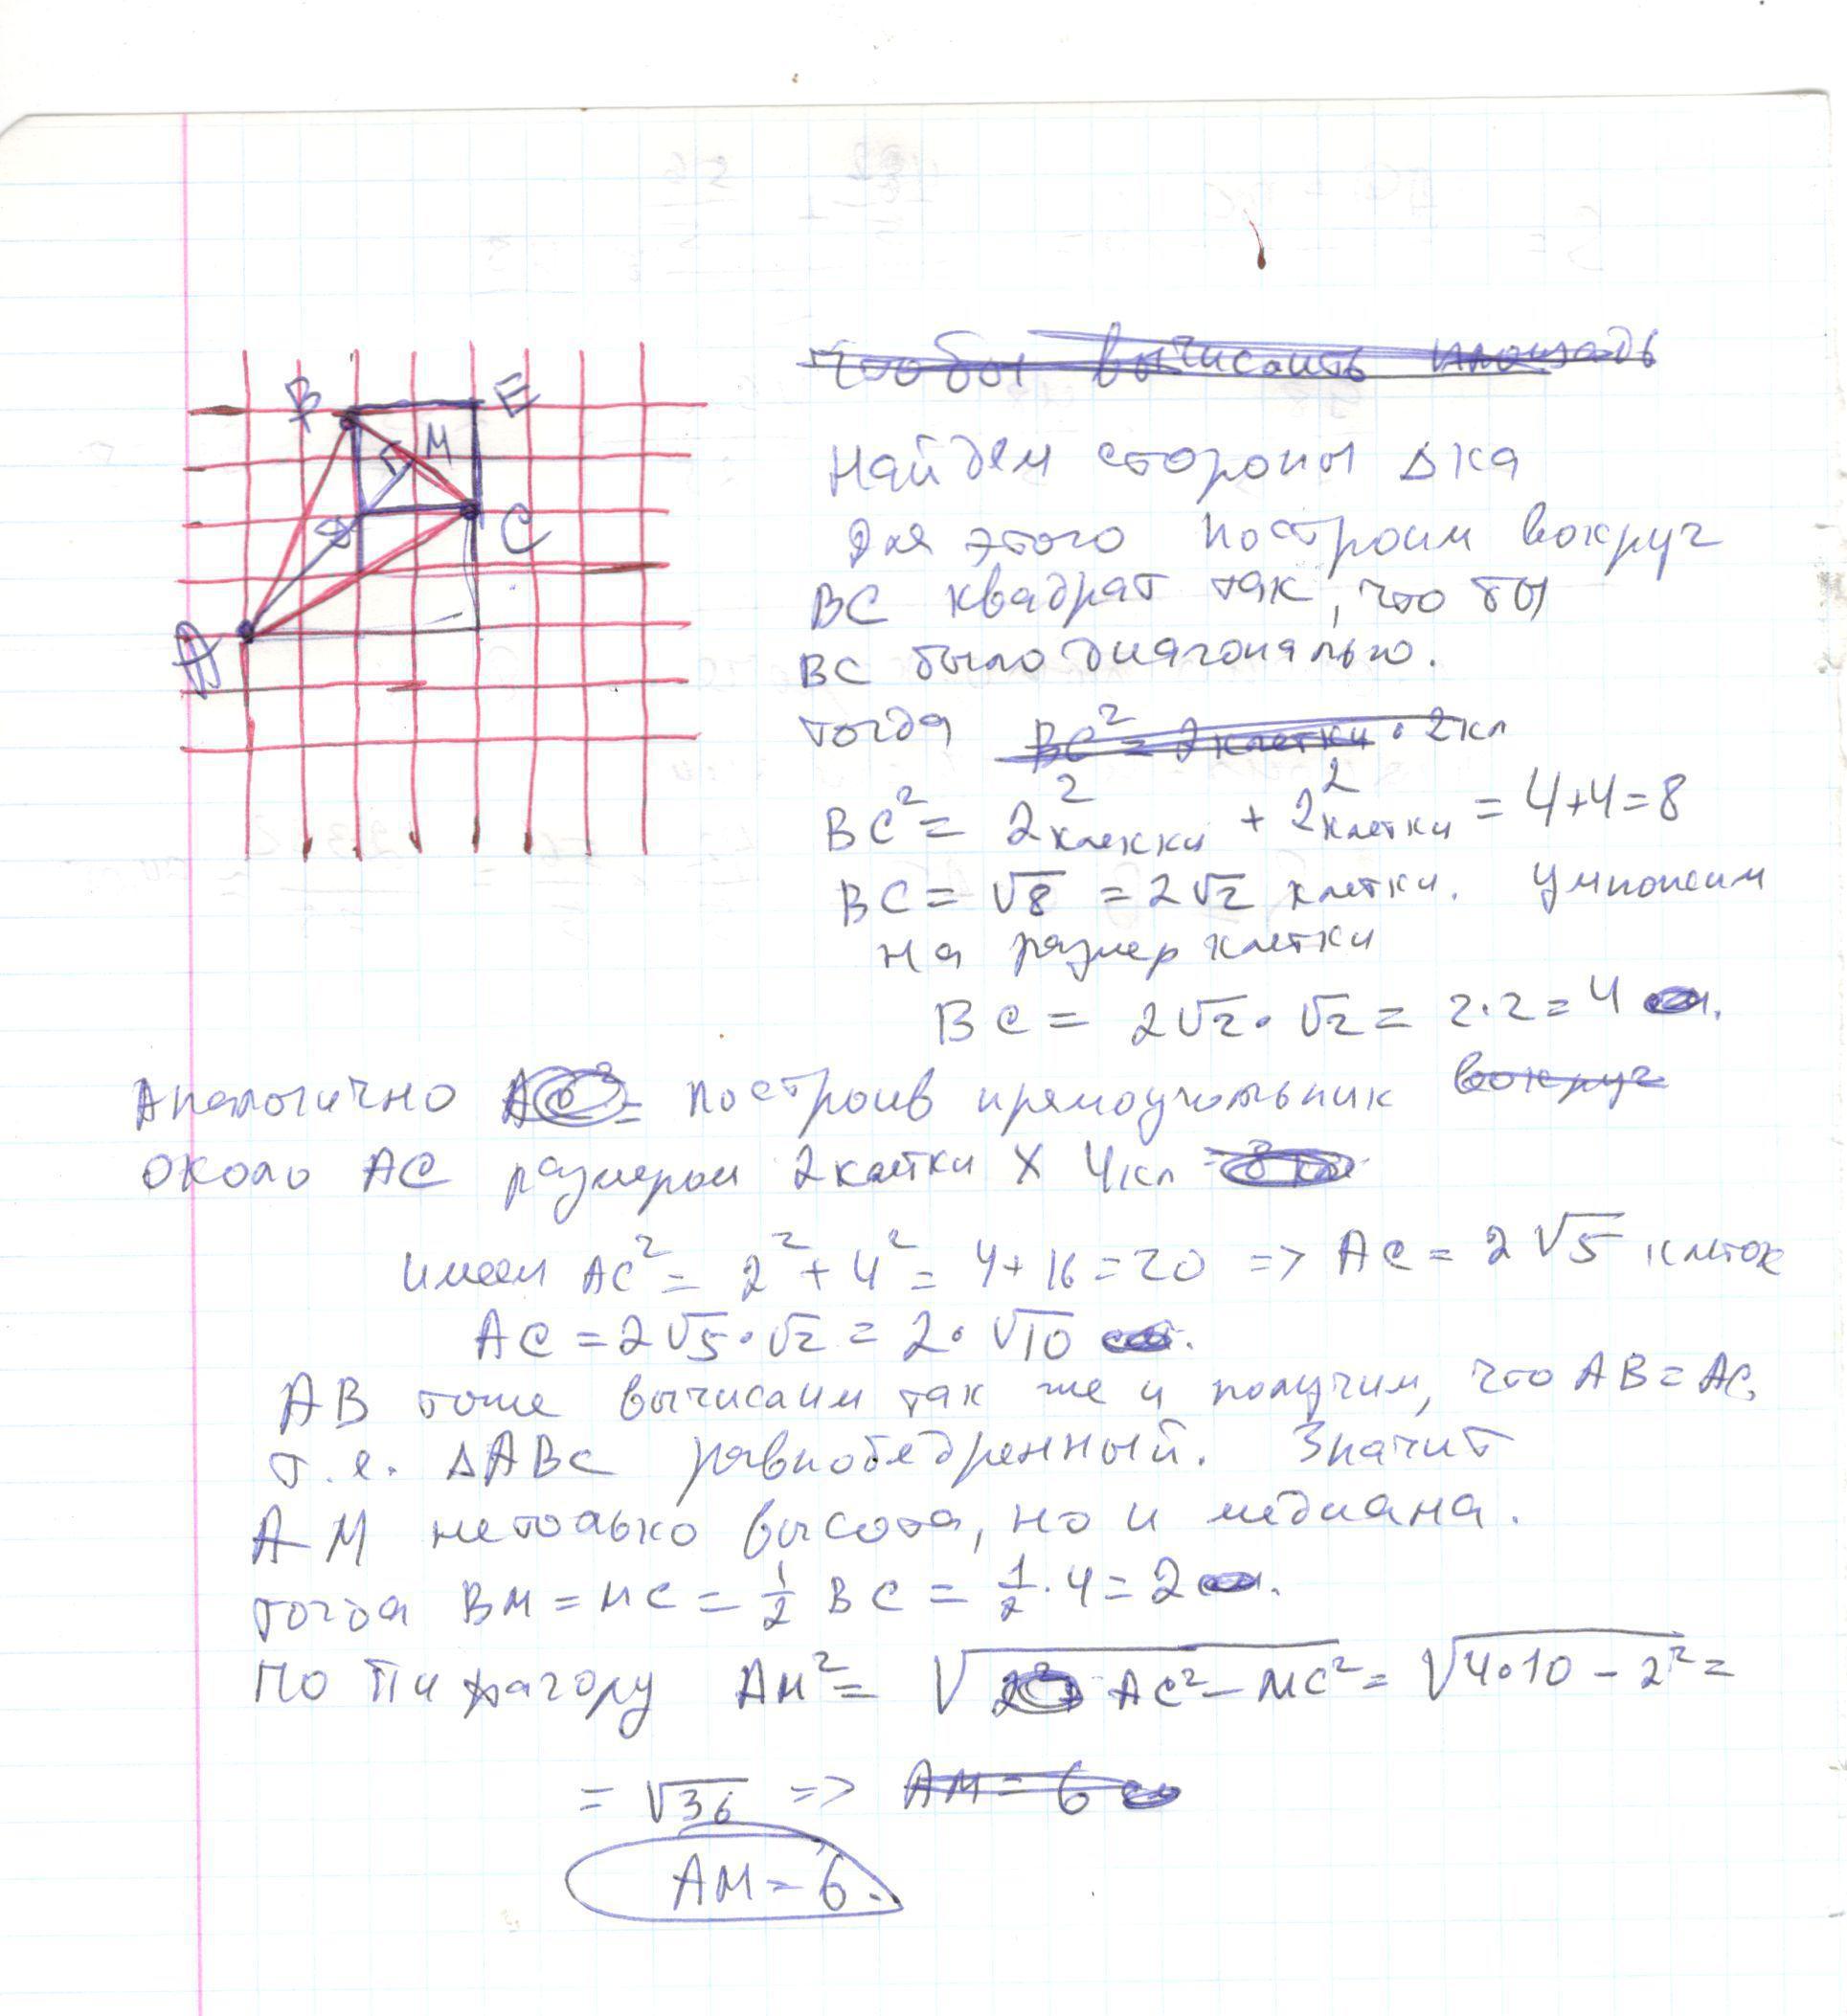 B E
M
C
A
Чтобы вычислить площадь
Найдем стороны Δка
Для этого построим вокруг
BC квадрат так, что бы
BC было диагональю.
тогда BC² = 2 клетки · 2 кл
BC² = 2² клекки + 2² клетки = 4+4=8
BC = √8 = 2√2 клетки. Умножим
на размер клетки
BC = 2√2 · √2 = 2·2 = 4
Аналогично построив прямоугольник вокруг
около AC размером 2 клетки X 4 кл
имеем AC² = 2² + 4² = 4 + 16 = 20 => AC = 2√5 клеток
AC = 2√5 · √2 = 2 · √10
AB тоже вычислим так же и получим, что AB = AC,
т.е. ΔABC равнобедренный. Значит
AM не только высота, но и медиана.
тогда BM = MC = 1/2 BC = 1/2 · 4 = 2
По Пифагору AM² = √AC² - MC² = √4·10 - 2² =
= √36 => AM = 6
AM = 6.